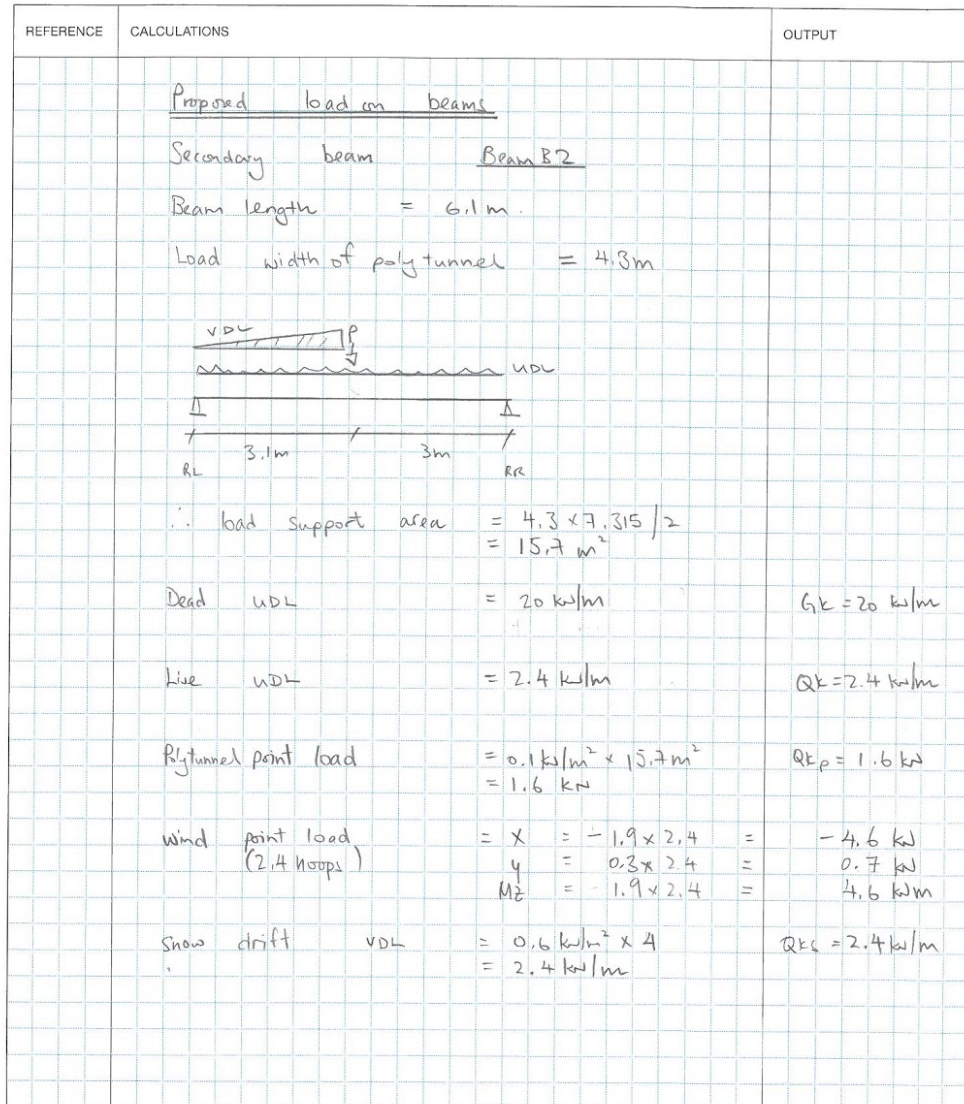 REFERENCE CALCULATIONS OUTPUT
Proposed load on beams
Secondary beam Beam B2
Beam length = 6.1m.
Load width of poly tunnel = 4.3m
VDL P
UDL
3.1m 3m
RL RR
∴ load support area = 4.3 x 7.315 / 2
= 15.7 m²
Dead UDL = 20 kN/m Gk = 20 kN/m
Live UDL = 2.4 kN/m Qk = 2.4 kN/m
Polytunnel point load = 0.1 kN/m² x 15.7 m² Qkp = 1.6 kN
= 1.6 kN
Wind point load = X = -1.9 x 2.4 = -4.6 kN
(2.4 hoops) y = 0.3 x 2.4 = 0.7 kN
Mz = 1.9 x 2.4 = 4.6 kNm
Snow drift VDL = 0.6 kN/m² x 4 Qks = 2.4 kN/m
= 2.4 kN/m